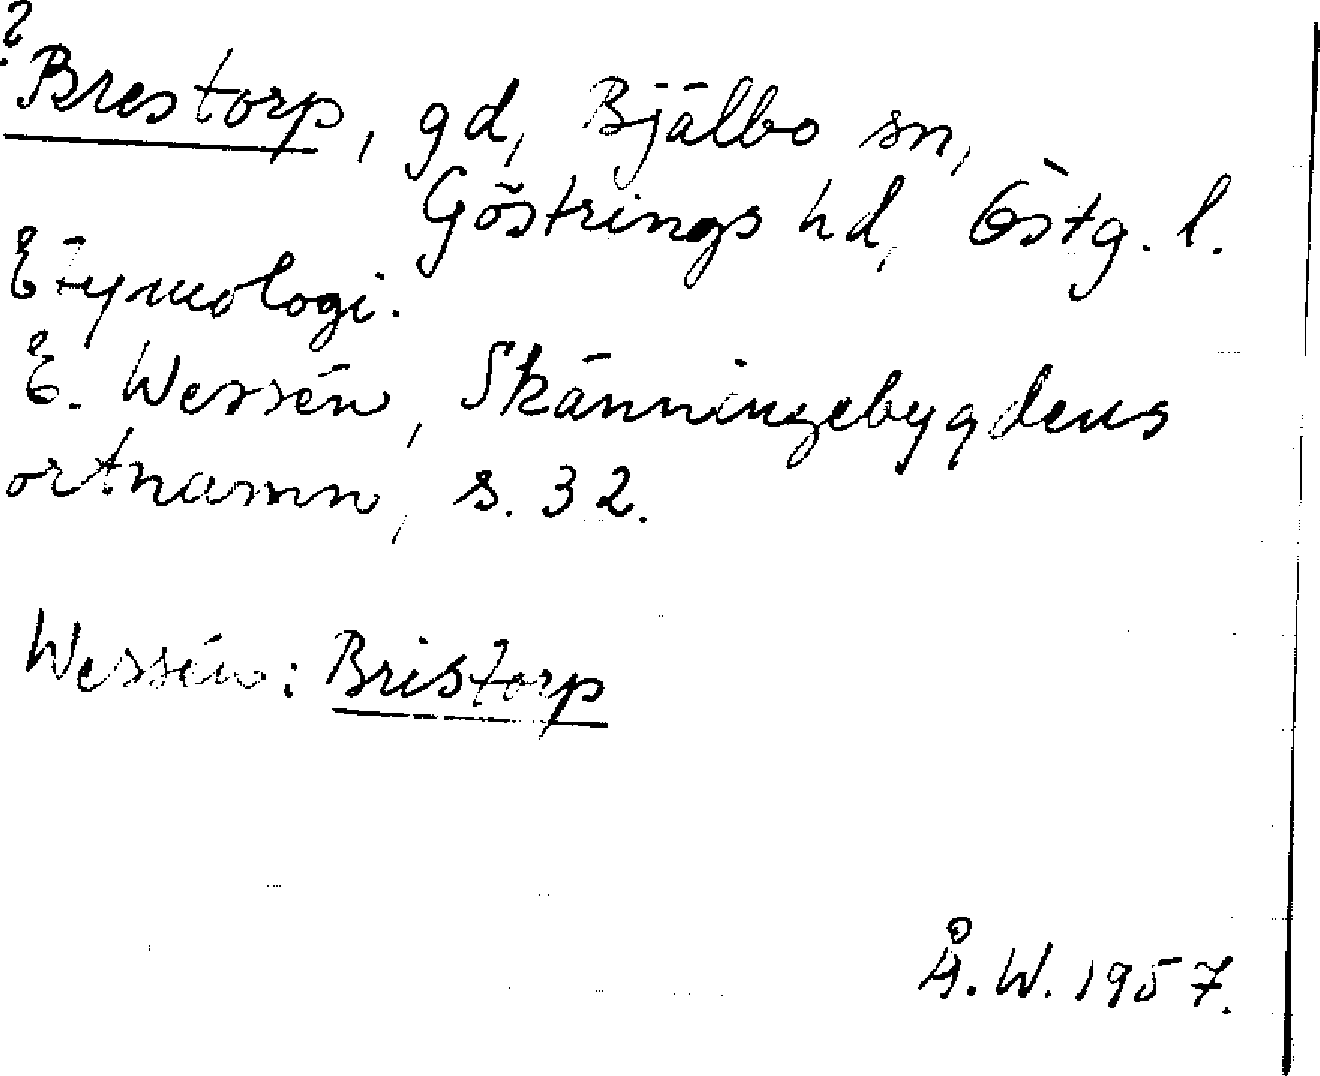 ?
Brestorp, gd, Bjälbo sn,
Göstrings hd, Östg. l.
Etymologi.
E. Wessén, Skänningebygdens
ortnamn, s. 32.
Wessén: Bristorp
Å. W. 1957.